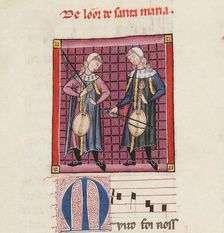 De loor de santa maria.
Muito foi noss